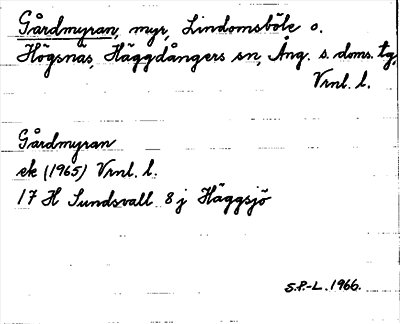 Gårdmyran, myr, Lindomsböle o.
Högsnäs, Häggdångers sn, Ång. s. doms. tg,
Vrnl. l.
Gårdmyran
ek (1965) Vrnl. l.
17 H Sundsvall 8 j Häggsjö
S.P.-L. 1966.